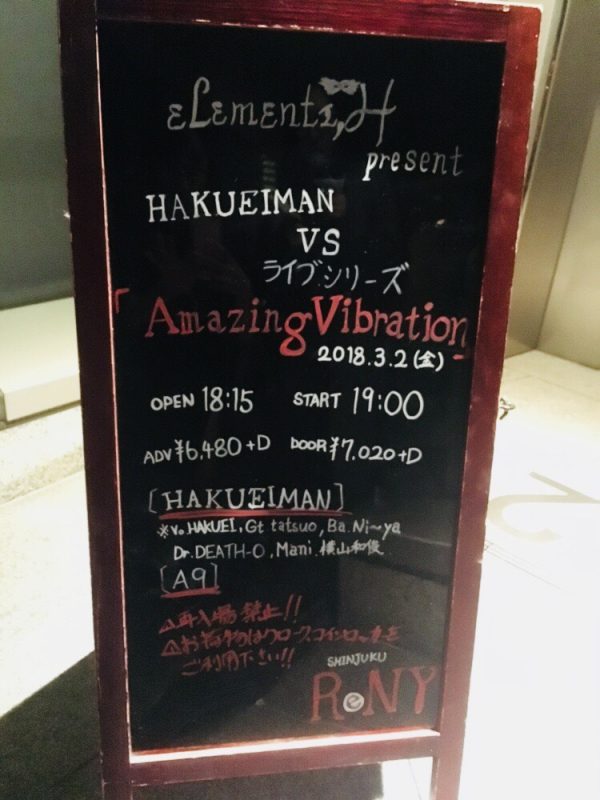 eLements,H
present
HAKUEIMAN
VS
ライブシリーズ
「Amazing Vibration」
2018.3.2(金)
OPEN 18:15 START 19:00
ADV ¥6,480+D DOOR ¥7,020+D
[HAKUEIMAN]
※Vo.HAKUEI, Gt tatsuo, Ba. Ni~ya
Dr. DEATH-O, Mani. 横山和俊
[A9]
⚠再入場禁止!!
⚠お荷物はクロークコインロッカーを
ご利用下さい!!
SHINJUKU
ReNY